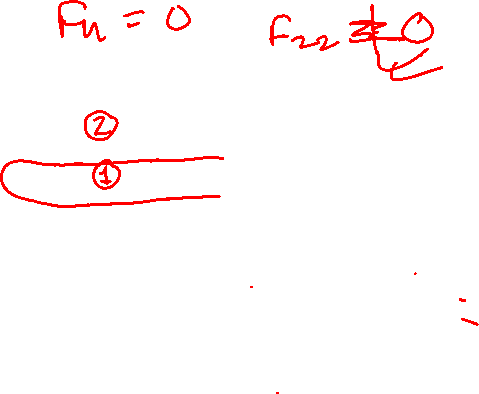 F11 = 0 F22 = 0
②
①